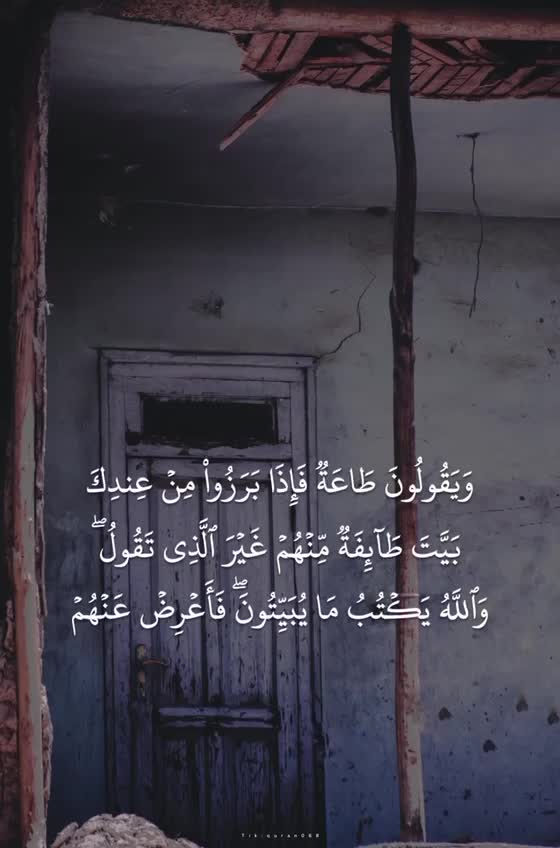 وَيَقُولُونَ طَاعَةٌ فَإِذَا بَرَزُوا۟ مِنْ عِندِكَ
بَيَّتَ طَآئِفَةٌ مِّنْهُمْ غَيْرَ ٱلَّذِى تَقُولُ ۖ
وَٱللَّهُ يَكْتُبُ مَا يُبَيِّتُونَ ۖ فَأَعْرِضْ عَنْهُمْ
Tik:quran068